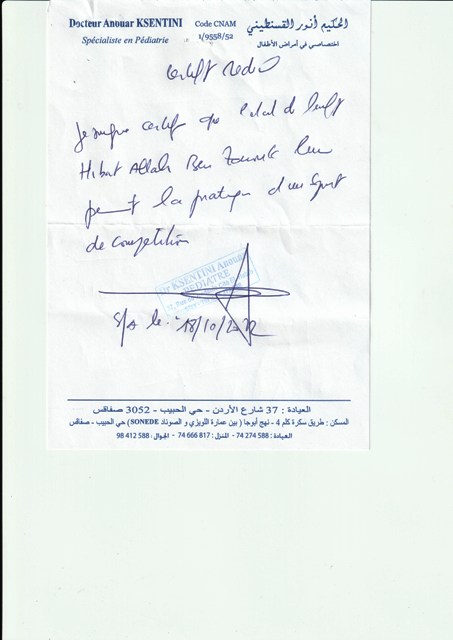 Docteur Anouar KSENTINI
Spécialiste en Pédiatrie
Code CNAM
1/9558/52
الحكيم أنور القسنطيني
اختصاصي في أمراض الأطفال
certif
Je certifie que l'état de
Hibat Allah Ben lui
permet la pratique d'un sport
de compétition
Dr KSENTINI Anouar
PEDIATRE
le 18/10/2022
العيادة : 37 شارع الأردن - حي الحبيب - 3052 صفاقس
المسكن : طريق سكرة كلم 4 - نهج أبوجا ( بين عمارة اللويزي و الصوناد SONEDE) حي الحبيب - صفاقس
العيادة: 588 274 74 - المنزل: 817 666 74 - الجوال: 588 412 98